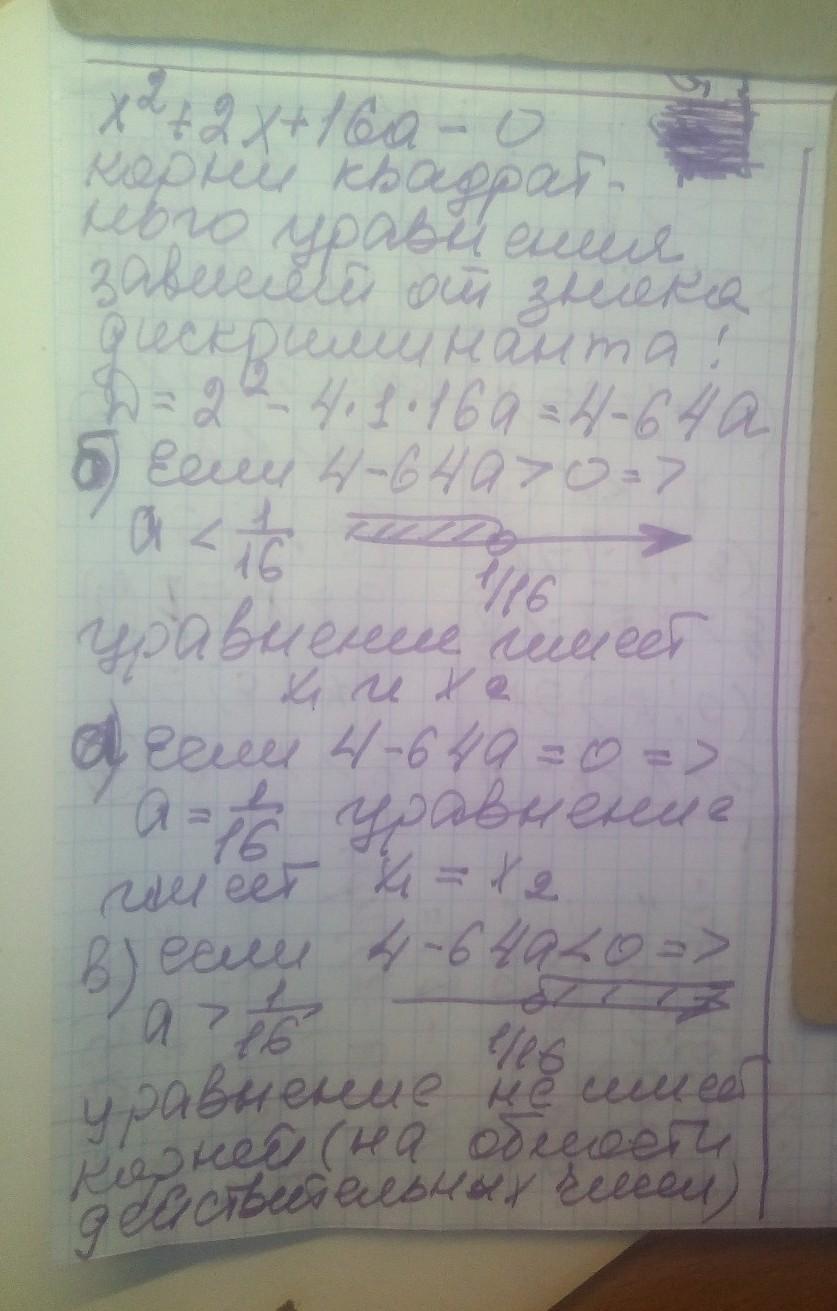 x² + 2x + 16a - 0
корни квадрат-
ного уравнения
зависит от знака
дискриминанта!
D = 2² - 4·1·16a = 4 - 64a
б) если 4 - 64a > 0 =>
a < 1/16
1/16
уравнение имеет
x₁ и x₂
а) если 4 - 64a = 0 =>
a = 1/16 уравнение
имеет x₁ = x₂
в) если 4 - 64a < 0 =>
a > 1/16
1/16
уравнение не имеет
корней (на области
действительных чисел)